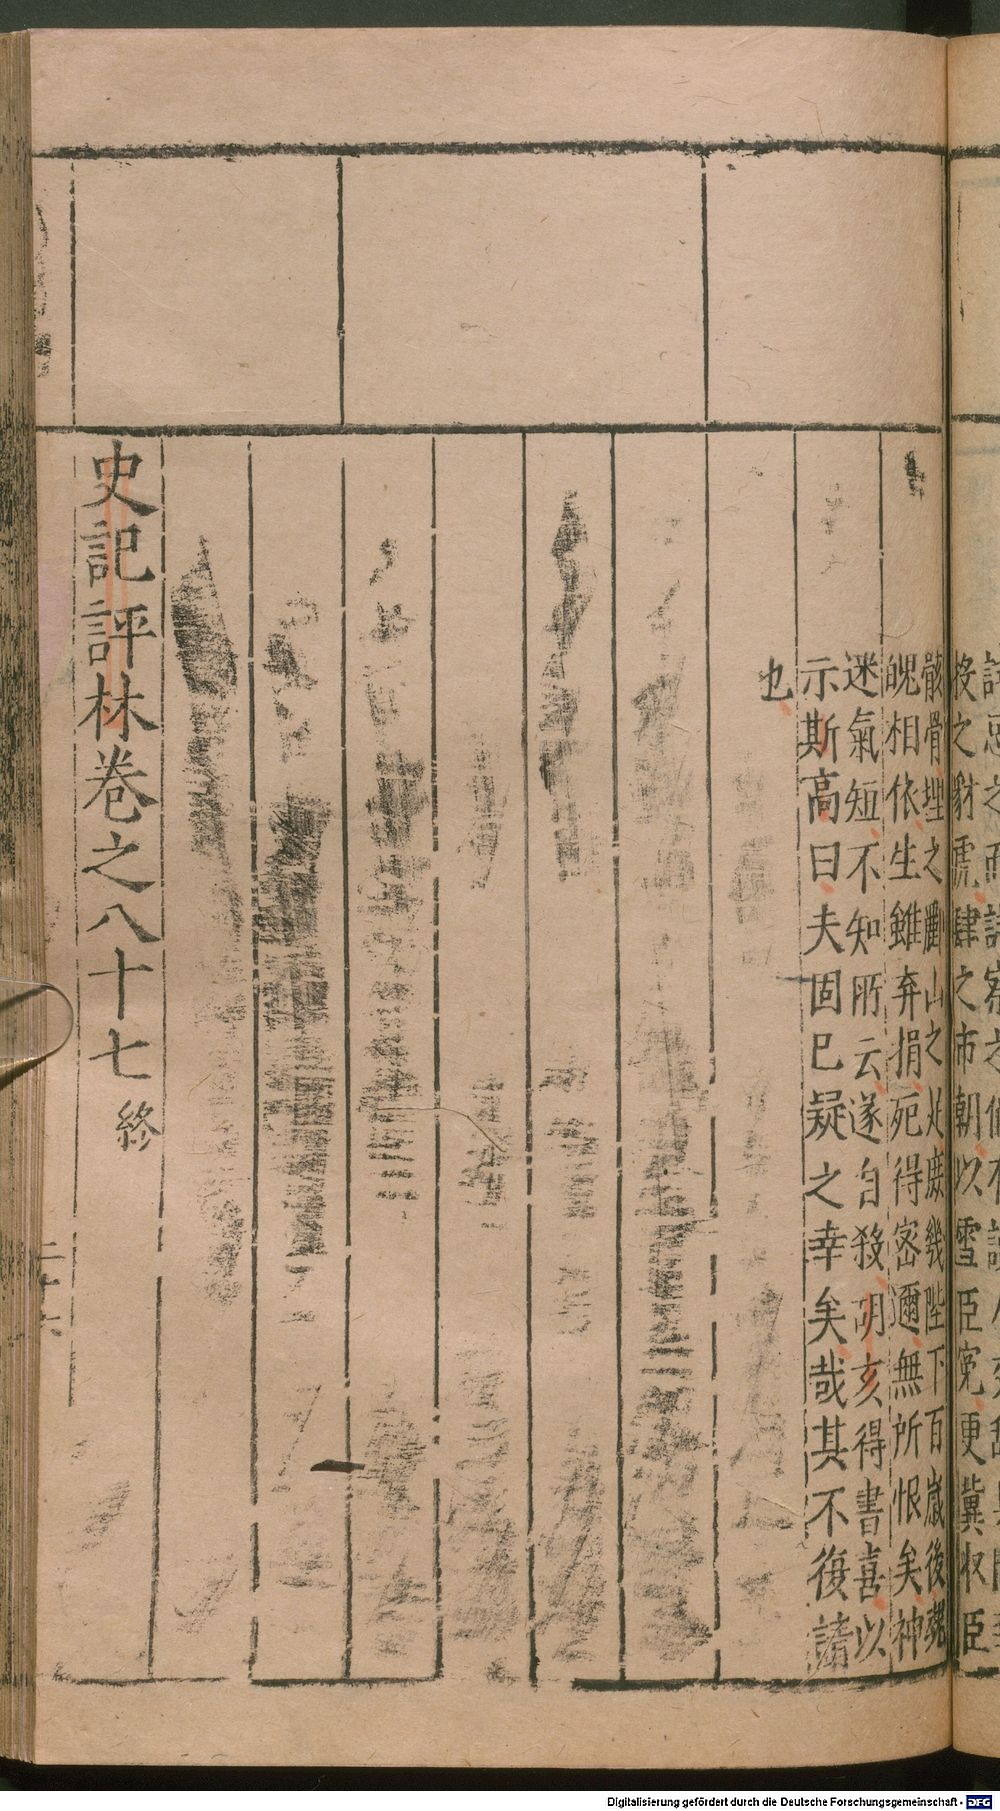 骸骨埋之酈山之火庶幾陛下百歲後葬
䰟相依生雖弃捐死得密邇無所恨矣神
迷氣短不知所云遂自殺胡亥得書喜以
示斯高曰夫固已疑之幸矣哉其不復請
也
史記評林卷之八十七 終
Digitalisierung gefördert durch die Deutsche Forschungsgemeinschaft - DFG